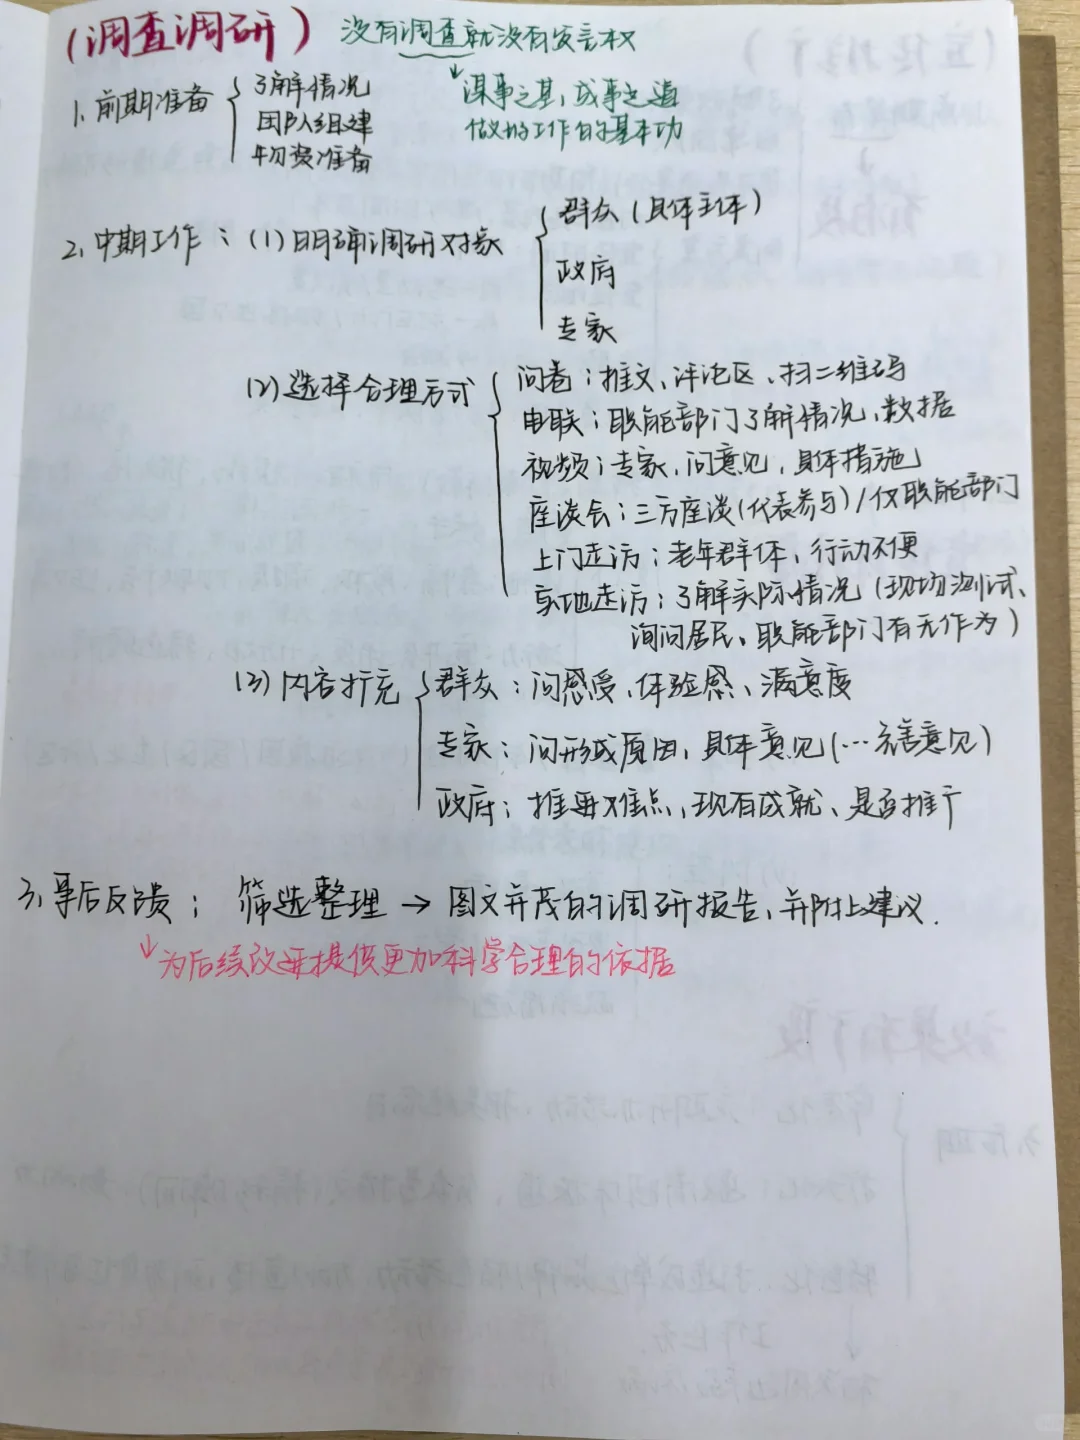 (调查调研) 没有调查就没有发言权
谋事之基,成事之道
做好工作的基本功
1、前期准备 { 了解情况
团队组建
物资准备
2、中期工作:(1)明确调研对象 { 群众(具体主体)
政府
专家
(2)选择合理方式 { 问卷:推文、评论区、扫二维码
电联:职能部门了解情况、数据
视频:专家,问意见,具体措施
座谈会:三方座谈(代表参与)/仅职能部门
上门走访:老年群体,行动不便
实地走访:了解实际情况(现场测试、
询问居民、职能部门有无作为)
(3)内容扩充 { 群众:问感受、体验感、满意度
专家:问形成原因,具体意见(…完善意见)
政府:推进难点,现有成就、是否推广
3、事后反馈:筛选整理→图文并茂的调研报告,并附上建议.
为后续改进提供更加科学合理的依据